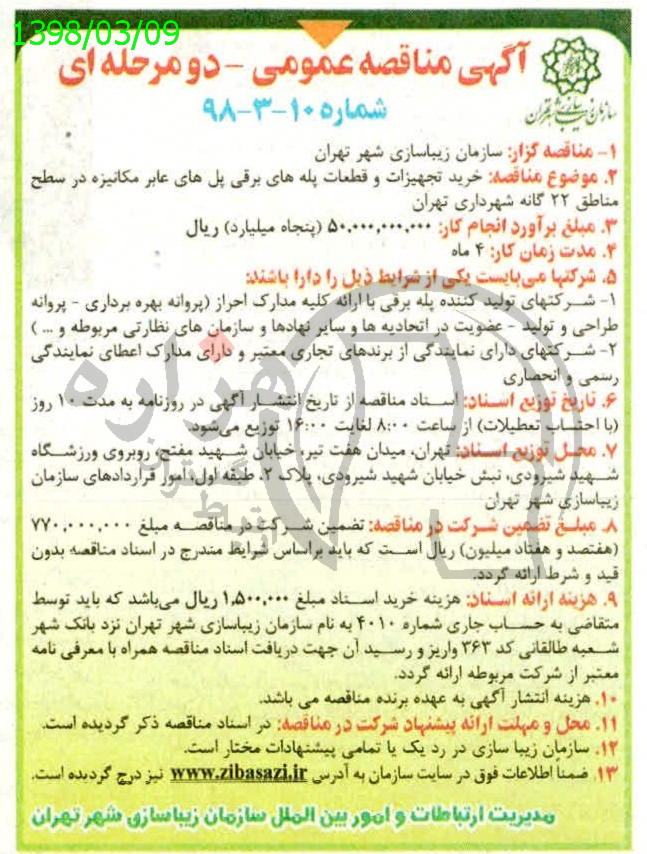 1398/03/09
آگهی مناقصه عمومی - دو مرحله ای
شماره ۱۰-۳-۹۸
سازمان زیباسازی شهر تهران
۱- مناقصه گزار: سازمان زیباسازی شهر تهران
۲. موضوع مناقصه: خرید تجهیزات و قطعات پله های برقی پل های عابر مکانیزه در سطح
مناطق ۲۲ گانه شهرداری تهران
۳. مبلغ برآورد انجام کار: ۵۰,۰۰۰,۰۰۰,۰۰۰ (پنجاه میلیارد) ریال
۴. مدت زمان کار: ۴ ماه
۵. شرکتها می‌بایست یکی از شرایط ذیل را دارا باشند:
۱- شرکتهای تولید کننده پله برقی با ارائه کلیه مدارک احراز (پروانه بهره برداری - پروانه
طراحی و تولید - عضویت در اتحادیه ها و سایر نهادها و سازمان های نظارتی مربوطه و ... )
۲- شرکتهای دارای نمایندگی از برندهای تجاری معتبر و دارای مدارک اعطای نمایندگی
رسمی و انحصاری
۶. تاریخ توزیع اسناد: اسناد مناقصه از تاریخ انتشار آگهی در روزنامه به مدت ۱۰ روز
(با احتساب تعطیلات) از ساعت ۸:۰۰ لغایت ۱۶:۰۰ توزیع می‌شود.
۷. محل توزیع اسناد: تهران، میدان هفت تیر، خیابان شهید مفتح، روبروی ورزشگاه
شهید شیرودی، نبش خیابان شهید شیرودی، پلاک ۲، طبقه اول، امور قراردادهای سازمان
زیباسازی شهر تهران
۸. مبلغ تضمین شرکت در مناقصه: تضمین شرکت در مناقصه مبلغ ۷۷۰,۰۰۰,۰۰۰
(هفتصد و هفتاد میلیون) ریال است که باید براساس شرایط مندرج در اسناد مناقصه بدون
قید و شرط ارائه گردد.
۹. هزینه ارائه اسناد: هزینه خرید اسناد مبلغ ۱,۵۰۰,۰۰۰ ریال می‌باشد که باید توسط
متقاضی به حساب جاری شماره ۴۰۱۰ به نام سازمان زیباسازی شهر تهران نزد بانک شهر
شعبه طالقانی کد ۳۶۳ واریز و رسید آن جهت دریافت اسناد مناقصه همراه با معرفی نامه
معتبر از شرکت مربوطه ارائه گردد.
۱۰. هزینه انتشار آگهی به عهده برنده مناقصه می باشد.
۱۱. محل و مهلت ارائه پیشنهاد شرکت در مناقصه: در اسناد مناقصه ذکر گردیده است.
۱۲. سازمان زیبا سازی در رد یک یا تمامی پیشنهادات مختار است.
۱۳. ضمناً اطلاعات فوق در سایت سازمان به آدرس www.zibasazi.ir نیز درج گردیده است.
مدیریت ارتباطات و امور بین الملل سازمان زیباسازی شهر تهران
هزاره